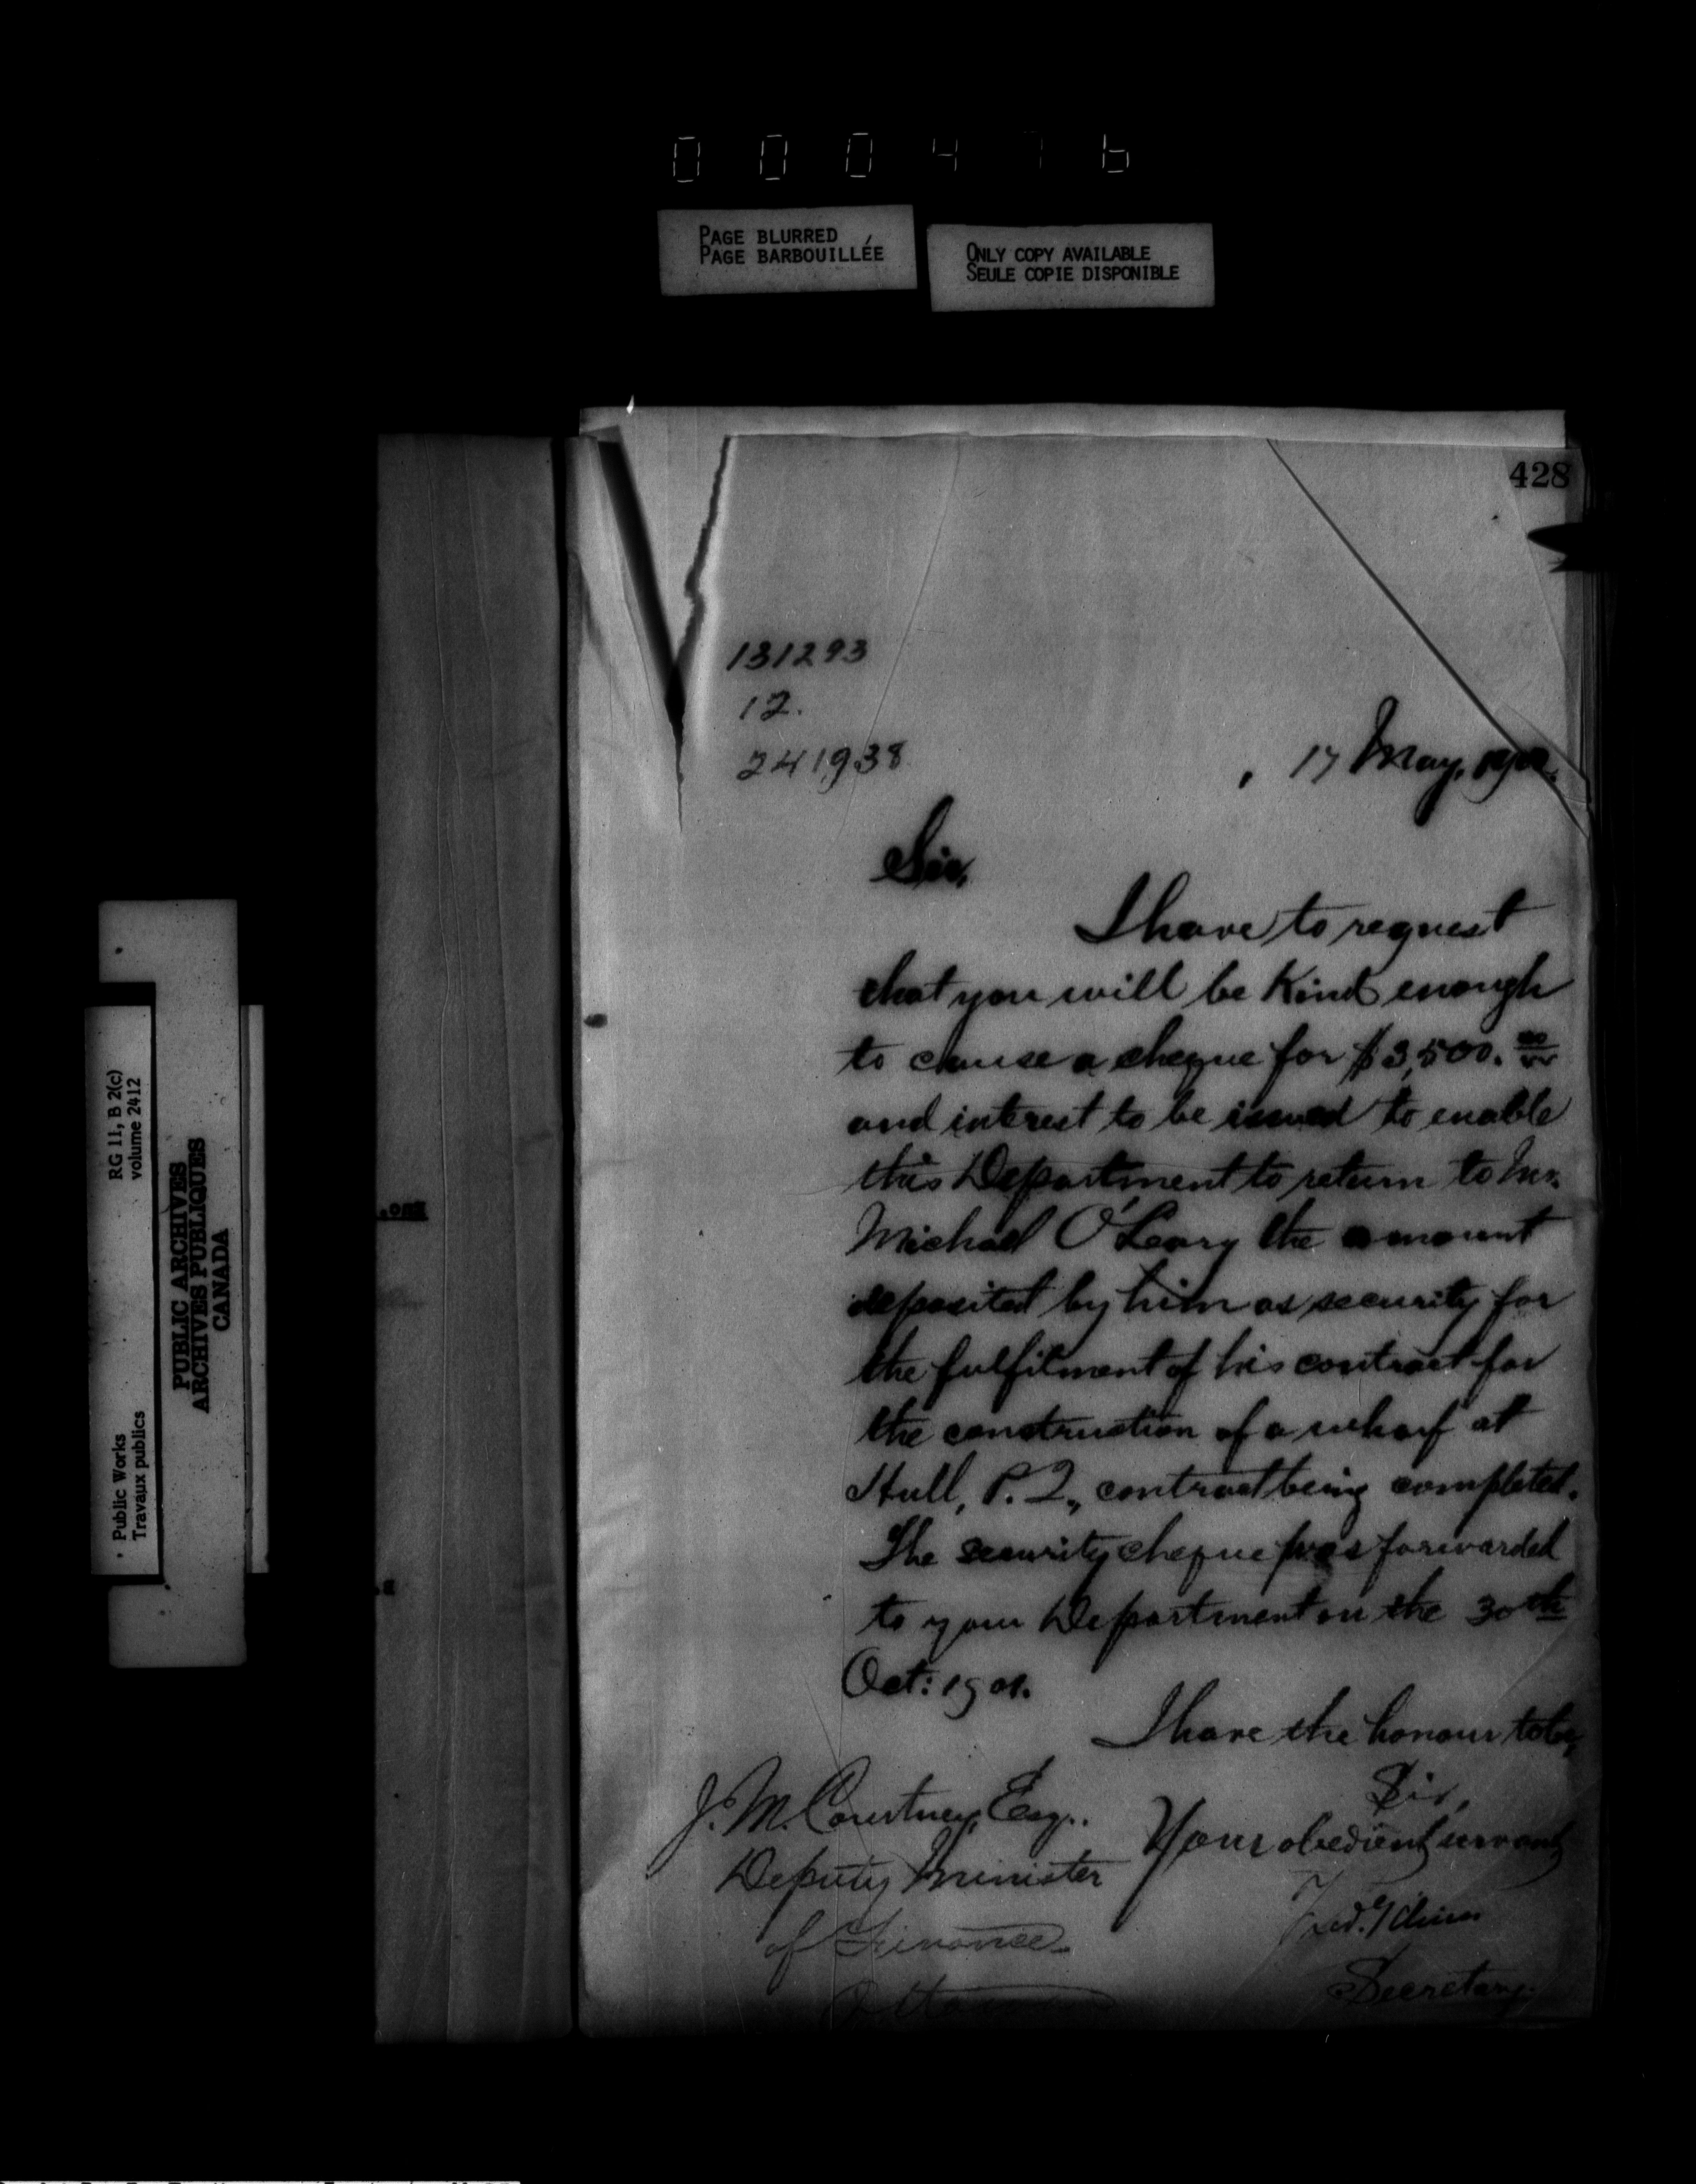 PAGE BLURRED
PAGE BARBOUILLÉE
ONLY COPY AVAILABLE
SEULE COPIE DISPONIBLE
428
131293
12.
241938
17 May, 1902.
Sir,
I have to request
that you will be kind enough
to cause a cheque for $3,500. 00/00
and interest to be issued to enable
this Department to return to Mr.
Michael O'Leary the amount
deposited by him as security for
the fulfilment of his contract for
the construction of a wharf at
Hull, P. Q., contract being completed.
The security cheque was forwarded
to your Department on the 30th
Oct: 1901.
I have the honour to be,
Sir,
Your obedient servant
Fred. Gélinas
Secretary.
J. M. Courtney, Esq..
Deputy Minister
of Finance
Ottawa
RG 11, B 2(c)
volume 2412
Public Works
Travaux publics
PUBLIC ARCHIVES
ARCHIVES PUBLIQUES
CANADA